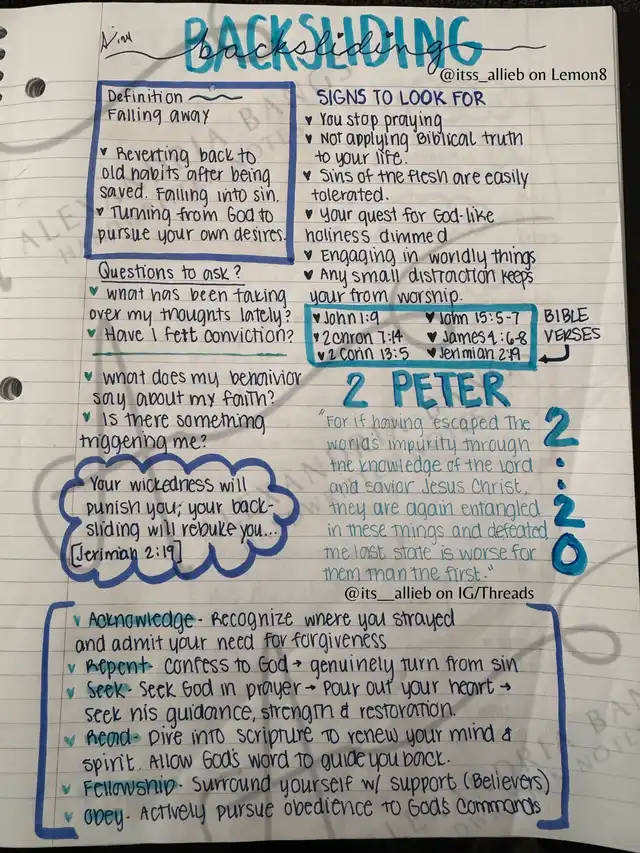 BACKSLIDING
backsliding
@itss_allieb on Lemon8
Definition
Falling away
♥ Reverting back to
old habits after being
saved. Falling into sin.
♥ Turning from God to
pursue your own desires.
Questions to ask?
♥ what has been taking
over my thoughts lately?
♥ Have I felt conviction?
♥ what does my behaivior
say about my faith?
♥ Is there something
triggering me?
Your wickedness will
punish you; your back-
sliding will rebuke you...
[Jerimiah 2:19]
SIGNS TO LOOK FOR
♥ You stop praying
♥ Not applying Biblical truth
to your life.
♥ Sins of the flesh are easily
tolerated.
♥ Your quest for God-like
holiness dimmed
♥ Engaging in worldly things
♥ Any small distraction keeps
your from worship.
♥ John 1:9 ♥ John 15:5-7
♥ 2 Chron 7:14 ♥ James 4:6-8
♥ 2 Corin 13:5 ♥ Jerimiah 2:19
BIBLE
VERSES
2 PETER
2:20
"For if having escaped the
world's impurity through
the knowledge of the lord
and savior Jesus Christ,
they are again entangled
in these things and defeated
the last state is worse for
them than the first."
@its__allieb on IG/Threads
♥ Acknowledge - Recognize where you strayed
and admit your need for forgiveness
♥ Repent - Confess to God → genuinely turn from sin
♥ Seek - Seek God in prayer → Pour out your heart →
seek his guidance, strength & restoration.
♥ Read - Dive into scripture to renew your mind &
spirit. Allow God's word to guide you back.
♥ Fellowship - Surround yourself w/ support (Believers)
♥ Obey - Actively pursue obedience to Gods Commands